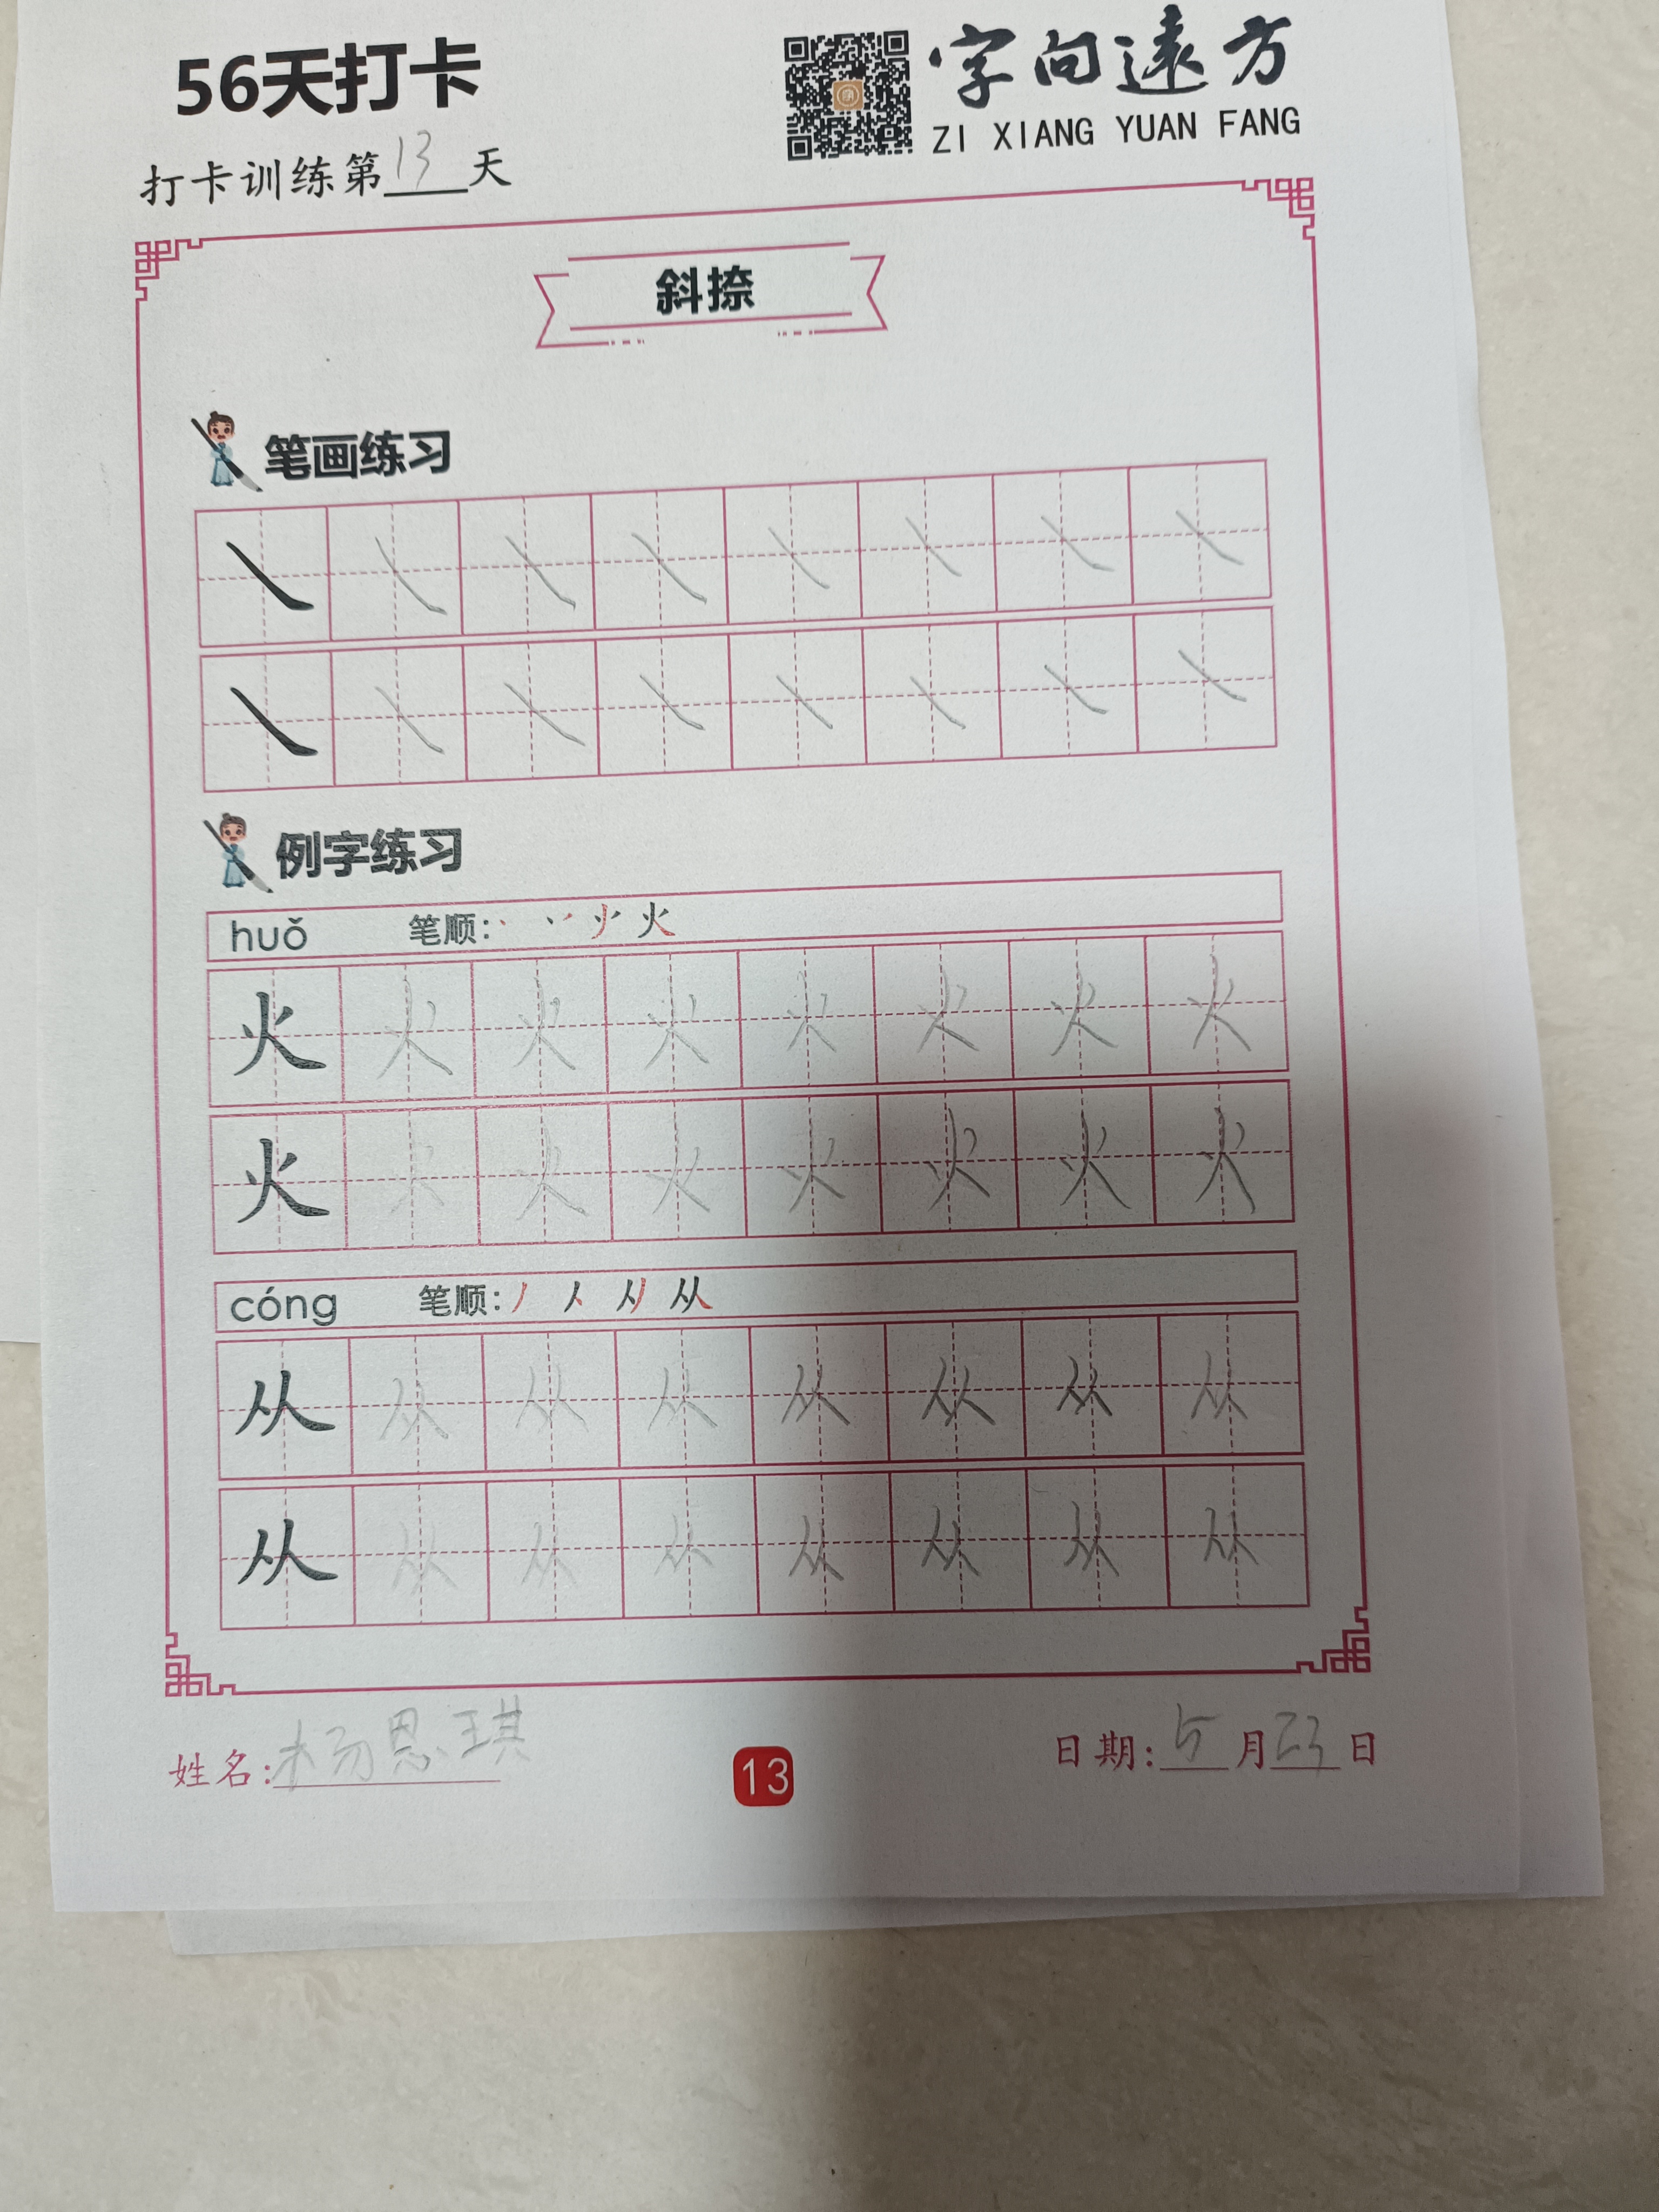 56天打卡
字向遠方
ZI XIANG YUAN FANG
打卡训练第13天
斜捺
笔画练习
例字练习
huǒ 笔顺: 火
火 火 火 火 火 火 火 火
火 火 火 火 火 火 火 火
cóng 笔顺: 从
从 从 从 从 从 从 从 从
从 从 从 从 从 从 从 从
姓名: 杨思琪
13
日期: 5月23日